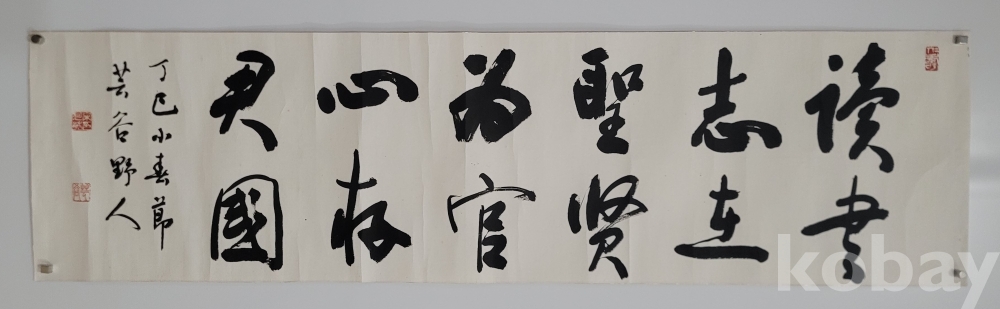 讀書
志在
聖賢
為官
心存
君國
丁巳小春節
芸谷野人
kobay